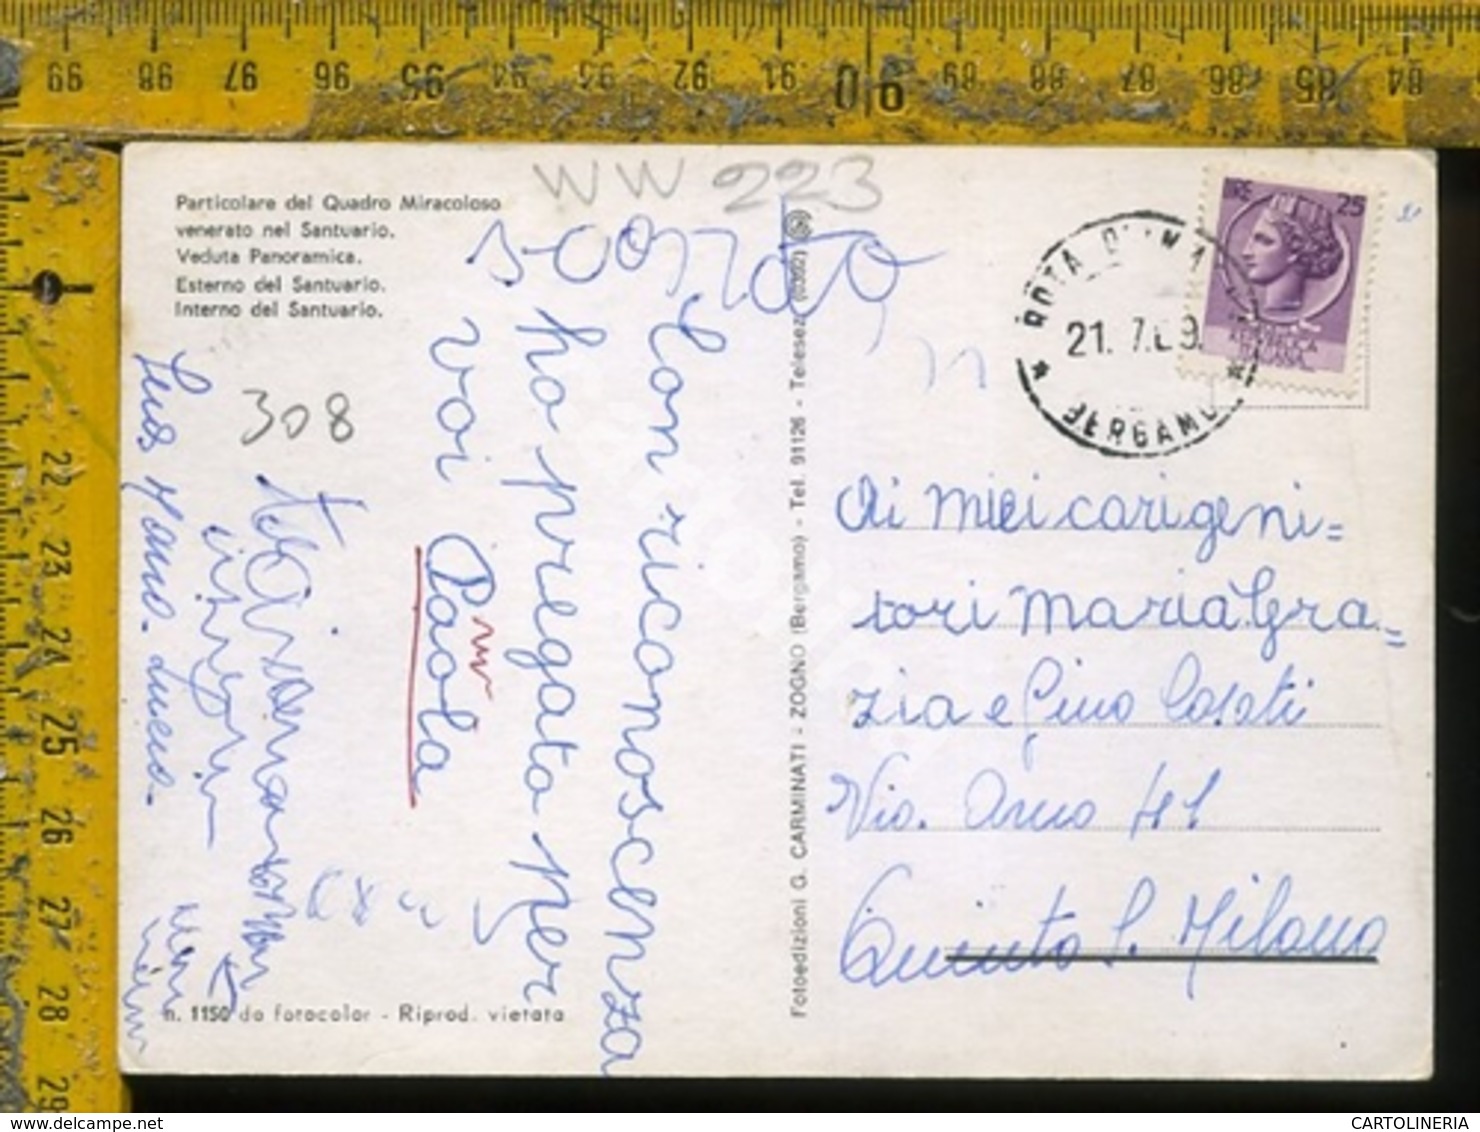 99 98 97 96 95 94 93 92 91 90 89 88 87 86 85 84
22
23
24
25
26
27
28
29
WW 223
Particolare del Quadro Miracoloso
venerato nel Santuario.
Veduta Panoramica.
Esterno del Santuario.
Interno del Santuario.
308
Con riconoscenza
ho pregato per
voi Paola
n. 1150 da fotocolor - Riprod. vietata
Fotoedizioni G. CARMINATI - ZOGNO (Bergamo) - Tel. 91126 - Telesez. (0392)
ROTA D'IMA
21.7.69
BERGAMO
LIRE 25
Ai miei cari geni=
tori Maria Gra=
zia e Gino Casati
Via. Arno
Quinto S. Milano
CARTOLINERIA